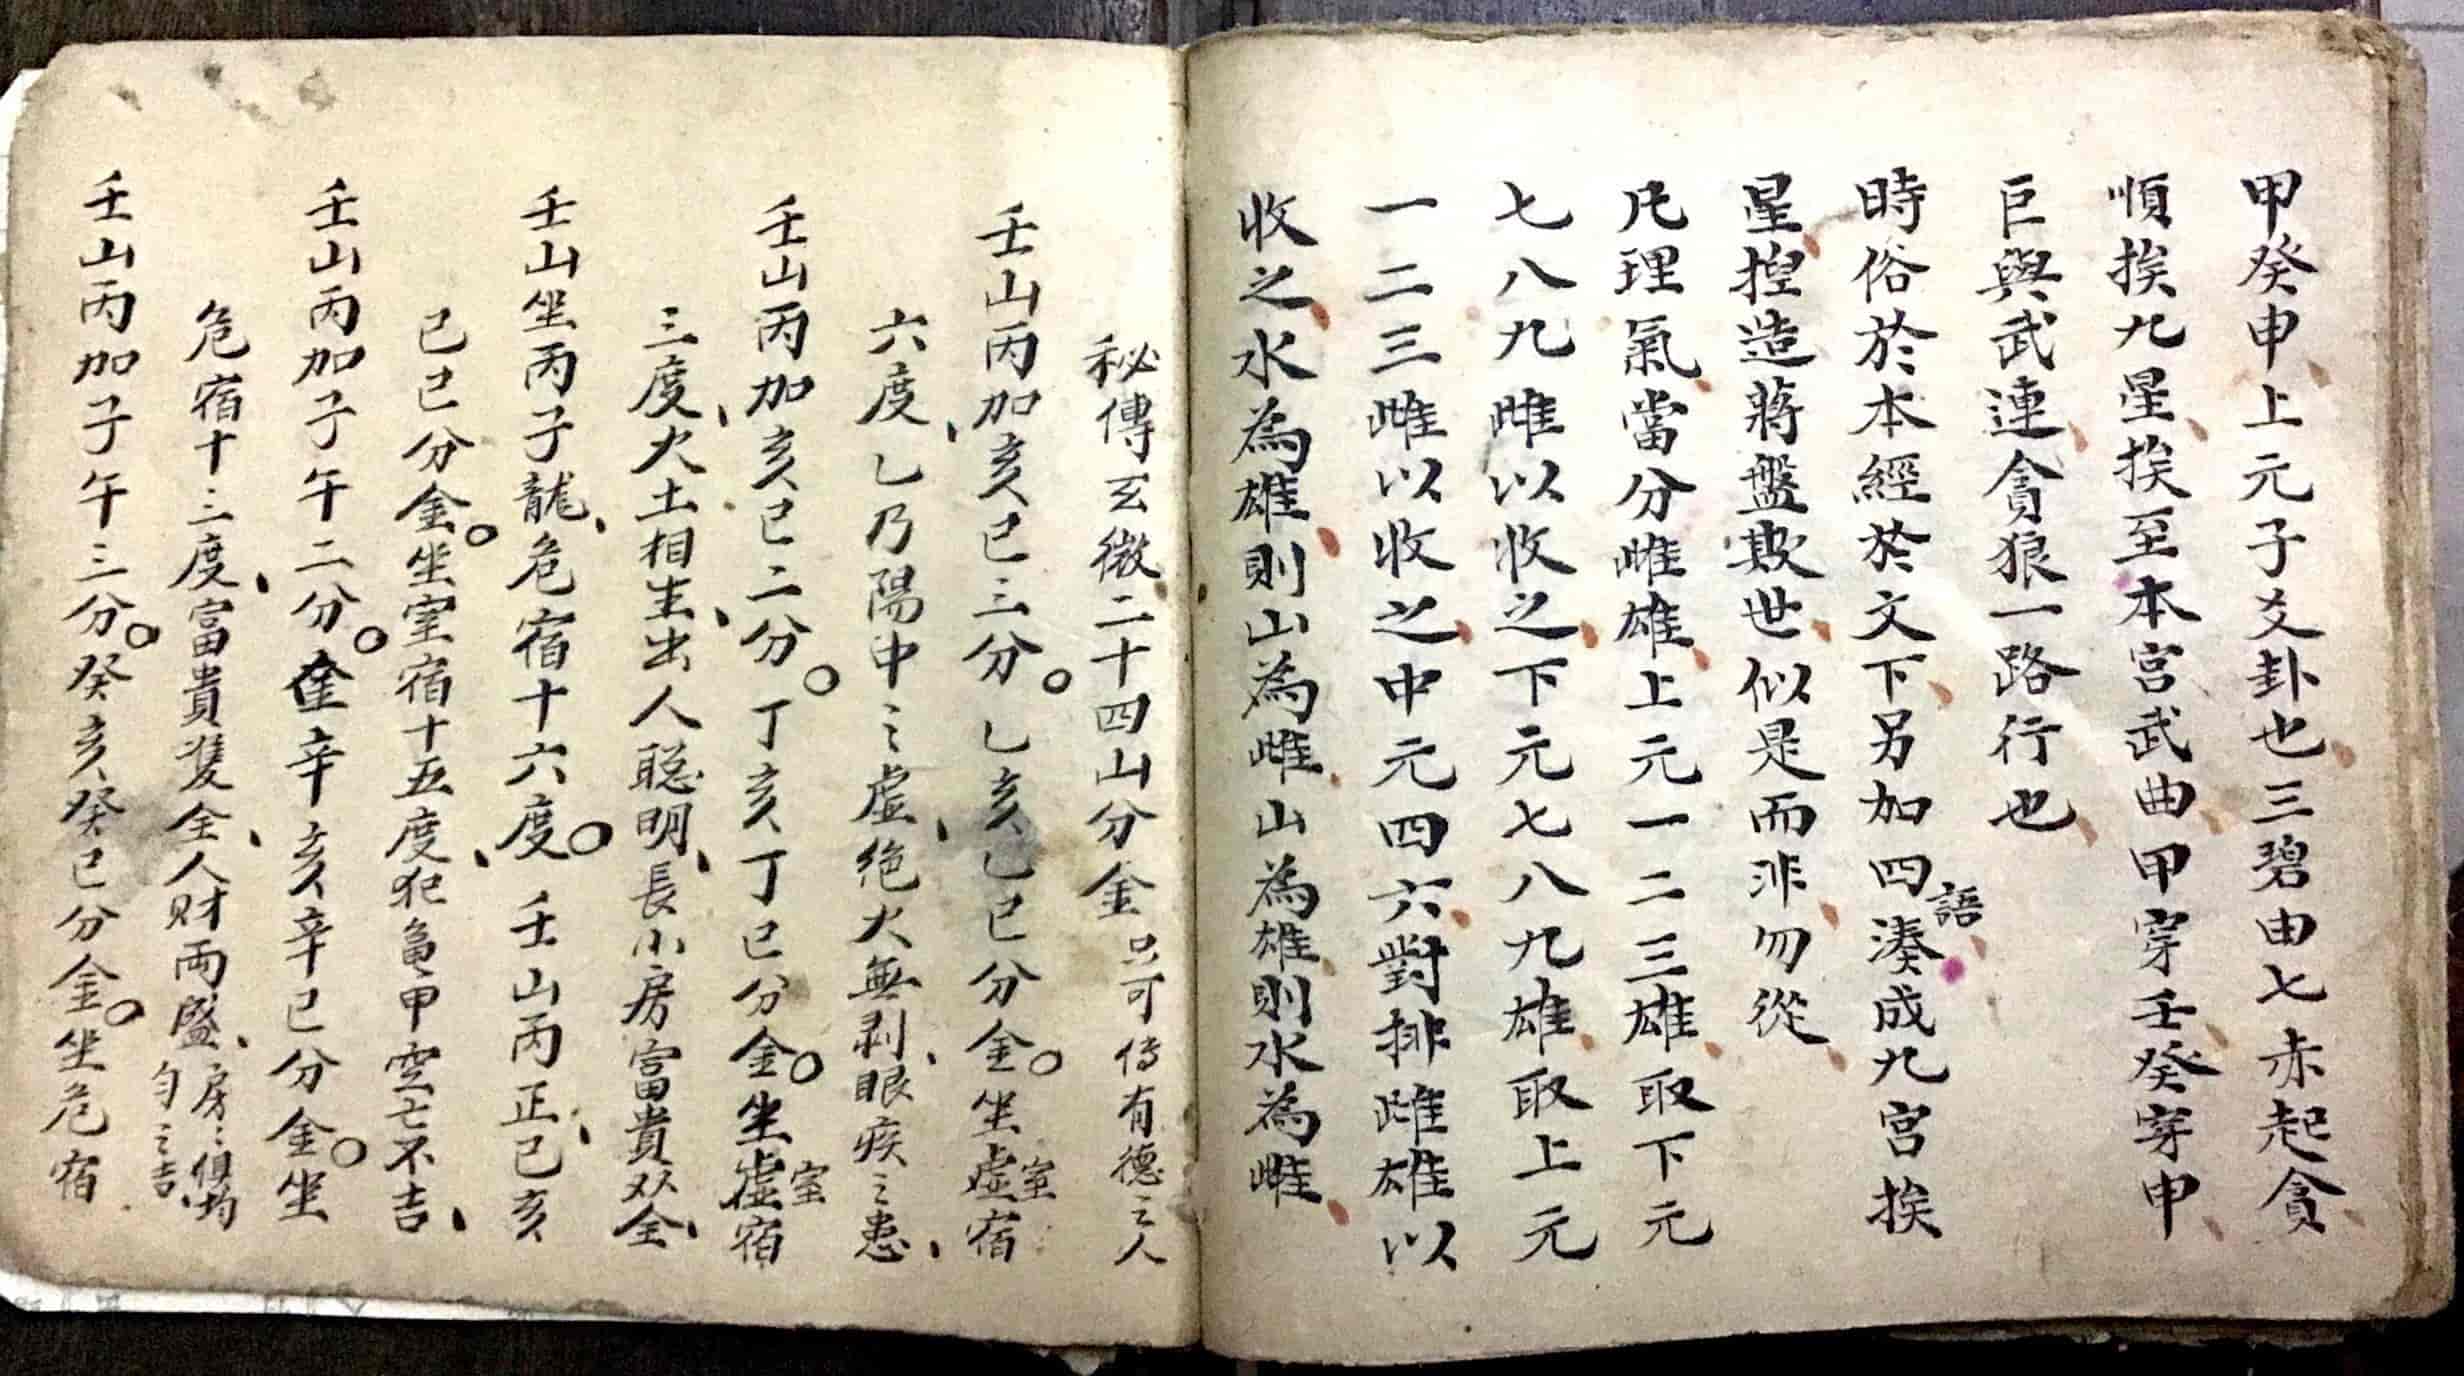 甲癸申上元子爻卦也三碧由七赤起貪
順挨九星挨至本宮武曲甲穿壬癸穿申
巨與武連貪狼一路行也
時俗於本經於文下另加四語湊成九宮挨
星揑造蔣盤欺世似是而非勿從
凡理氣當分雌雄上元一二三雄取下元
七八九雌以收之下元七八九雄取上元
一二三雌以收之中元四六對排雌雄以
收之水為雄則山為雌山為雄則水為雌
秘傳玄微二十四山分金只可傳有德之人
壬山丙加亥巳三分乙亥乙巳分金坐虛室宿
六度乙乃陽中之虛絕火無剥眼疾之患
壬山丙加亥巳二分丁亥丁巳分金坐虛室宿
三度火土相生出人聡明長小房富貴双全
壬山坐丙子龍危宿十六度壬山丙正己亥
己巳分金坐室宿十五度犯龜甲空亡不吉
壬山丙加子午二分辛亥辛巳分金坐
危宿十三度富貴雙全人財両盛房〻俱均勻之吉
壬山丙加子午三分癸亥癸巳分金坐危宿